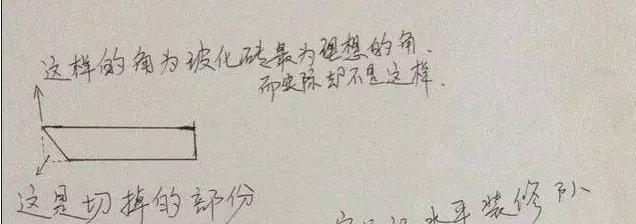 这样的角为玻化砖最为理想的角.
而实际却不是这样.
这是切掉的部份
水平装修队